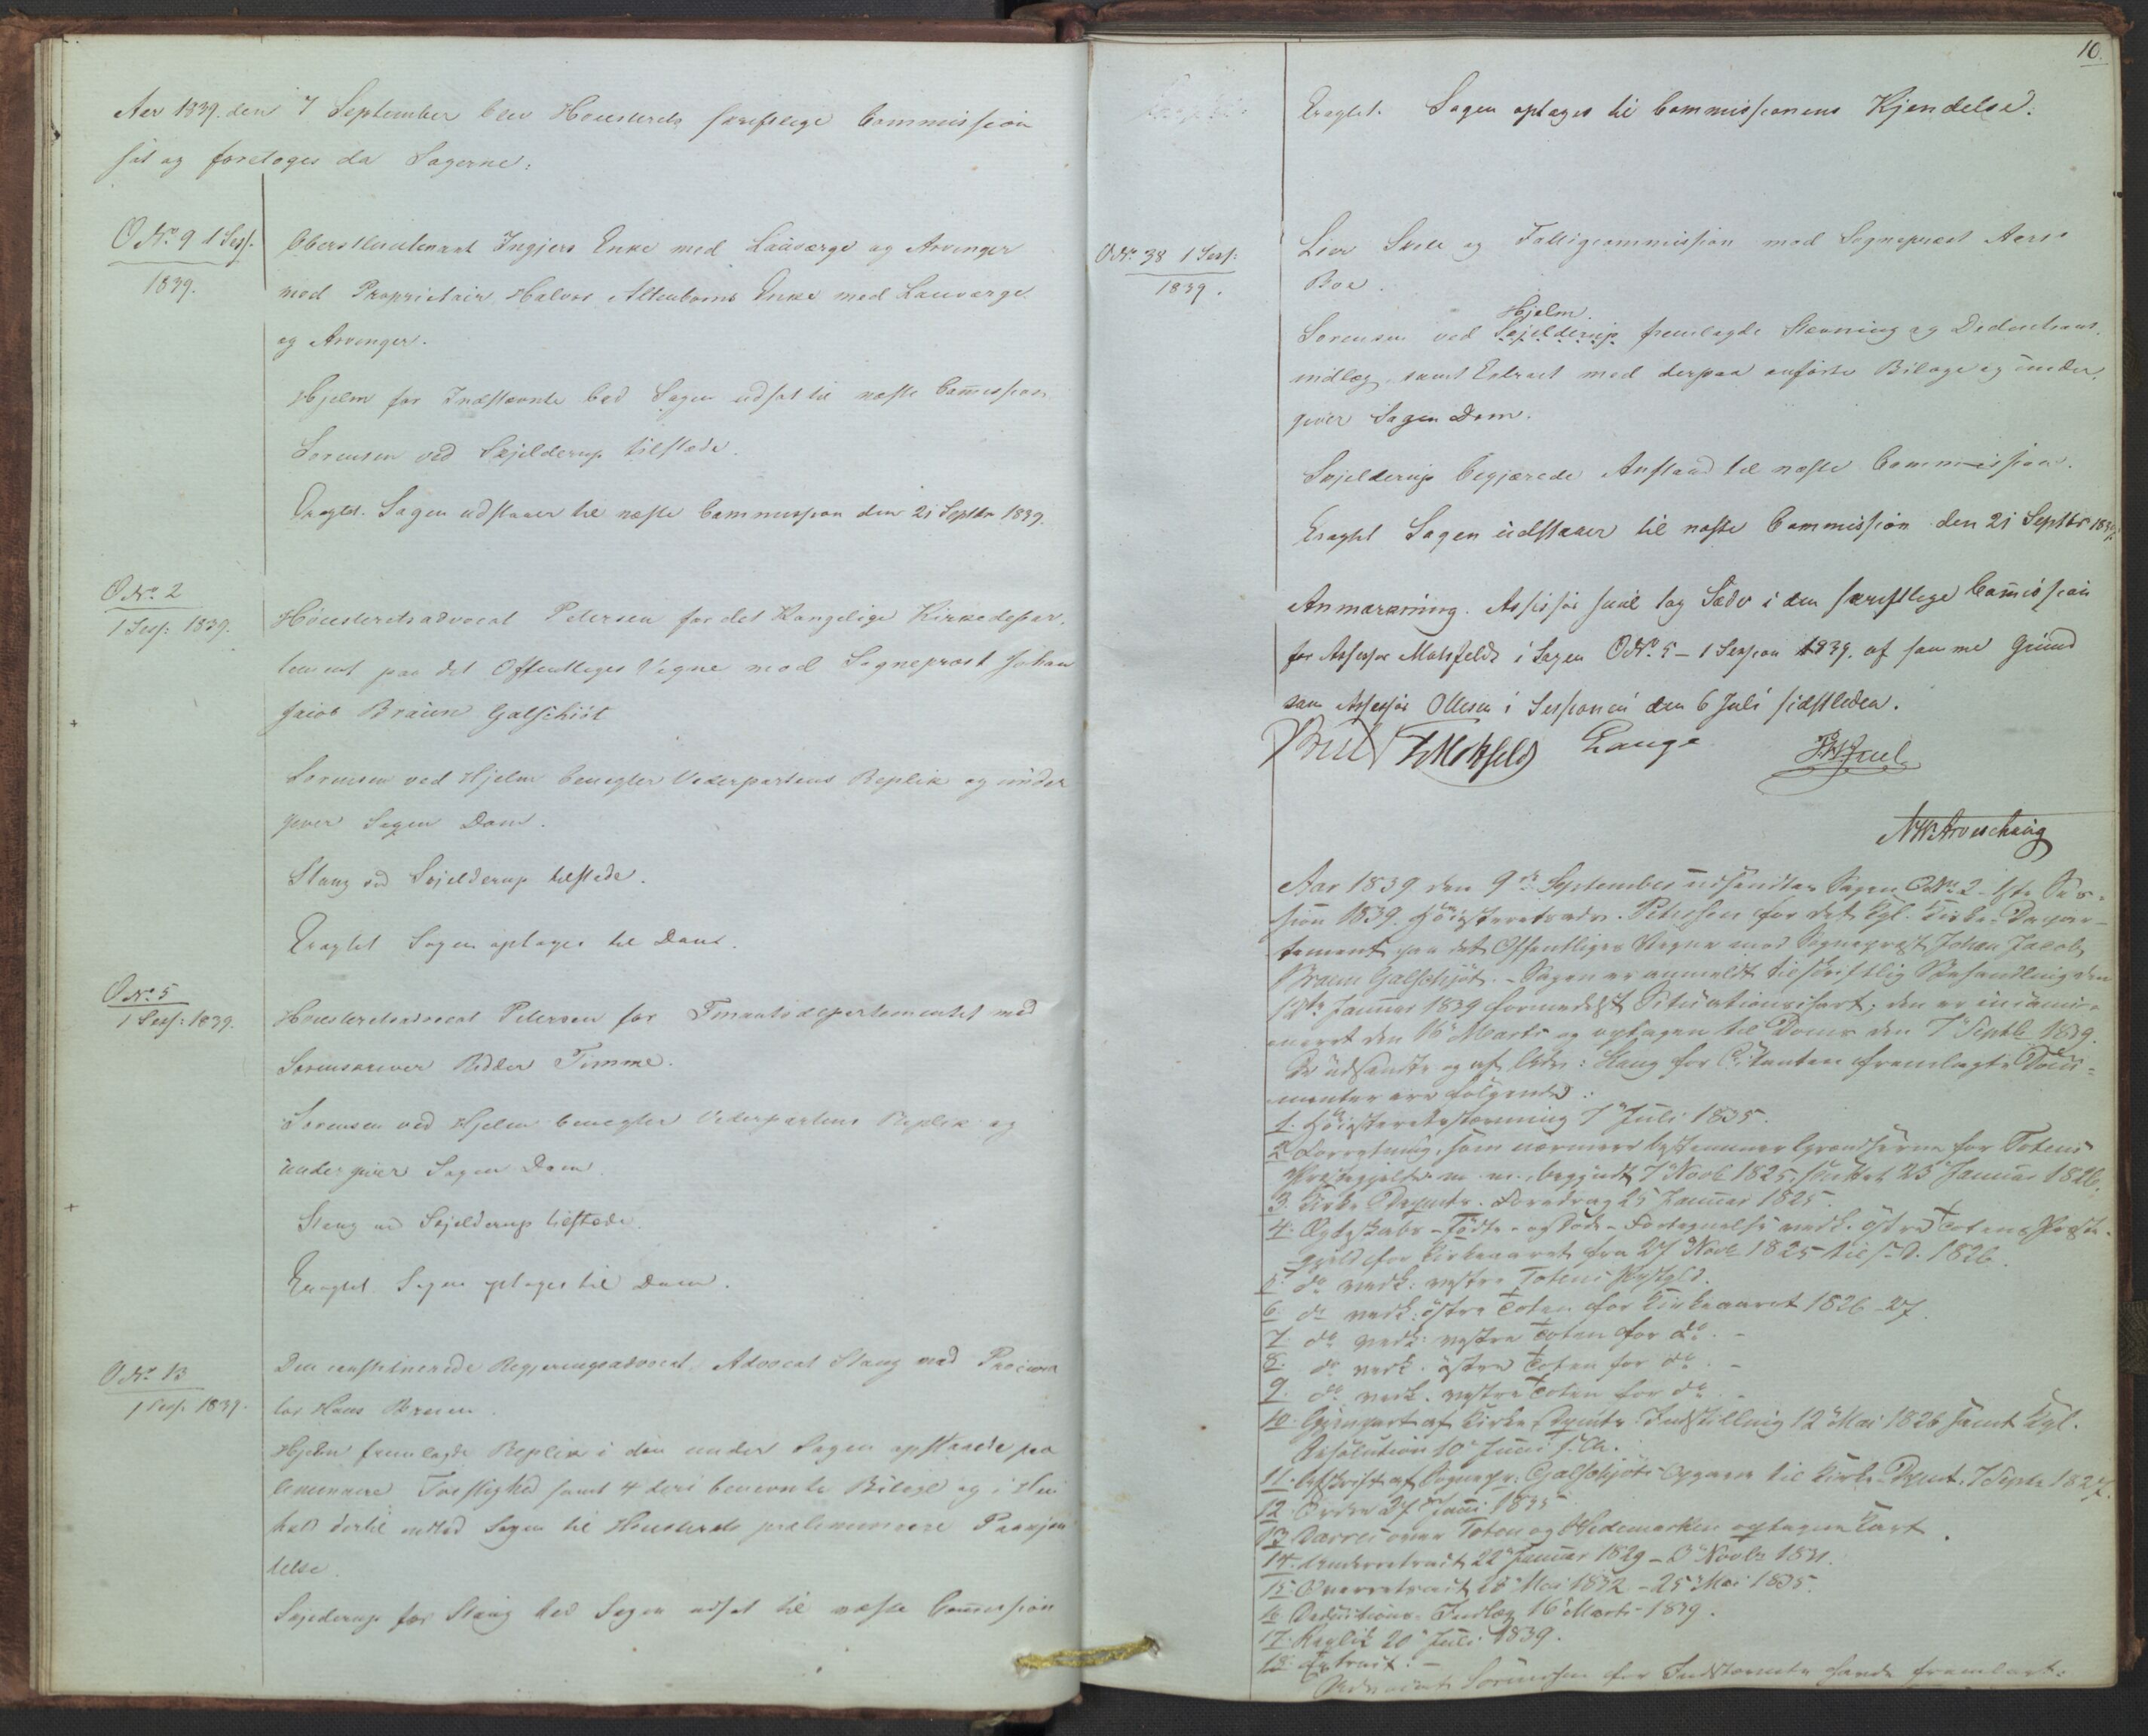 Aar 1839. den 7 September blev Høiesterets skriftlige Commission
sat og foretoges da Sagerne:
O No. 9 1 Sess.
1839.
Oberstlieutenant Ingjers Enke med Laugværge og Arvinger
mod Proprietair Halvor Enke med Lauværge
og Arvinger.
Hjelm for Indstævnte bad Sagen udsat til næste Commission.
Sørensen ved Skjelderup tilstede.
Eragtet. Sagen udstaaer til næste Commission den 21 Septbr 1839.
O No. 2
1 Sess: 1839.
Høiesteretsadvocat Petersen for det Kongelige Kirkedepar-
tement paa det Offentliges Vegne mod Sognepræst Johan
Jacob Braun Galschiøt
Sørensen ved Hjelm benegter Vederpartens Replik og under
giver Sagen Dom.
Stang ved Skjelderup tilstede.
Eragtet Sagen optages til Dom.
O No. 5
1 Sess: 1839.
Høiesteretsadvocat Petersen for Finantsdepartementet mod
Sorenskriver Ridder Timme.
Sørensen ved Hjelm benegter Vederpartens Replik og
undergiver Sagen Dom.
Stang ved Skjelderup tilstede.
Eragtet Sagen optages til Dom.
O No. 13
1 Sess: 1839.
Den constituerede Regjeringsadvocat, Advocat Stang mod Procura
tor Hans
Hjelm fremlagde Replik i den under Sagen opstaaede præ
liminaire Tvistighed samt 4 deri benævnte Bilage og i Hen
hold dertil indlod Sagen til Høiesterets præliminaire Paakjen
delse.
Skjelderup for Stang bad Sagen udsat til næste Commission
10.
Eragtet. Sagen optages til Commissionens Kjendelse.
O No. 38 1 Sess:
1839.
Lier Skole og Fattigcommission mod Sognepræst
Boe.
Hjelm.
Sørensen ved Skjelderup fremlagde Stævning og Deductions-
indlæg, samt Extract med derpaa anførte Bilage og under-
giver Sagen Dom.
Skjelderup begjærede Anstand til næste Commission.
Eragtet Sagen udstaaer til næste Commission den 21 Septbr 1839.
Anmærkning. Assessor Juul tog Sæde i den skriftlige Commission
for Assessor Motzfeldt i Sagen O No. 5 – 1 Session 1839. af samme Grund
som Assessor Ottesen i Sessionen den 6 Juli sidstleden.
Bull Motzfeldt Lange Juul
Aar 1839 den 9de September udsendtes Sagen O No. 2 – 1ste Ses-
sion 1839. Høiesteretsadv. Petersen for det Kgl. Kirke-Depar-
tement paa det Offentliges Vegne mod Sognepræst Johan Jacob
Braun Galschjøt. – Sagen er anmeldt til skriftlig Behandling den
Januar 1839 formedelst Situationscart; den er incami-
neret den 16 Marts og optagen til Doms den 7 Septb. 1839.
De udsendte og af Adv: Stang for Citanten fremlagte Docu-
menter ere følgende:
1. Høiesteretsstævning 7 Juli 1835.
2 Forretning, som nærmere bestemmer Grændserne for Totens
Præstegjelde m. m., begyndt 7 Novb 1825, sluttet 23 Januar 1826.
3. Kirke Departs. Foredrag 25 Januar 1825.
4. Ægteskabs – Fødte – og Døde – Fortegnelse vedk. østre Totens Præste-
gjeld for Kirkeaaret fra 27 Novb 1825 til s. D. 1826.
5. do vedk: vestre Totens Pstgld.
6. do vedk: østre Toten for Kirkeaaret 1826–27.
7. do vedk: vestre Toten for do. –
8. do vedk. østre Toten for do. –
9. do vedk. vestre Toten for do. –
10. Gjenpart af Kirke Departs Indstilling 12 Mai 1826 samt Kgl.
Resolution 10 Juni s. A.
11. Afskrift af Sognepr: Galschjøts Opgave til Kirke-Depmt. 7 Septr 1827.
12. Ordre 27 Juni 1835
13 over Toten og Hedemarken optagne Kart.
14. Underretsact 22 Januar 1829 – 3 Novbr 1831.
15. Overretsact 28 Mai 1832 – 25 Mai 1835.
16 Deductions-Indlæg 16 Marts 1839.
17. Replik 20 Juli 1839.
18. Extract. –
Advocat Sørensen for Indstævnte havde fremlagt: